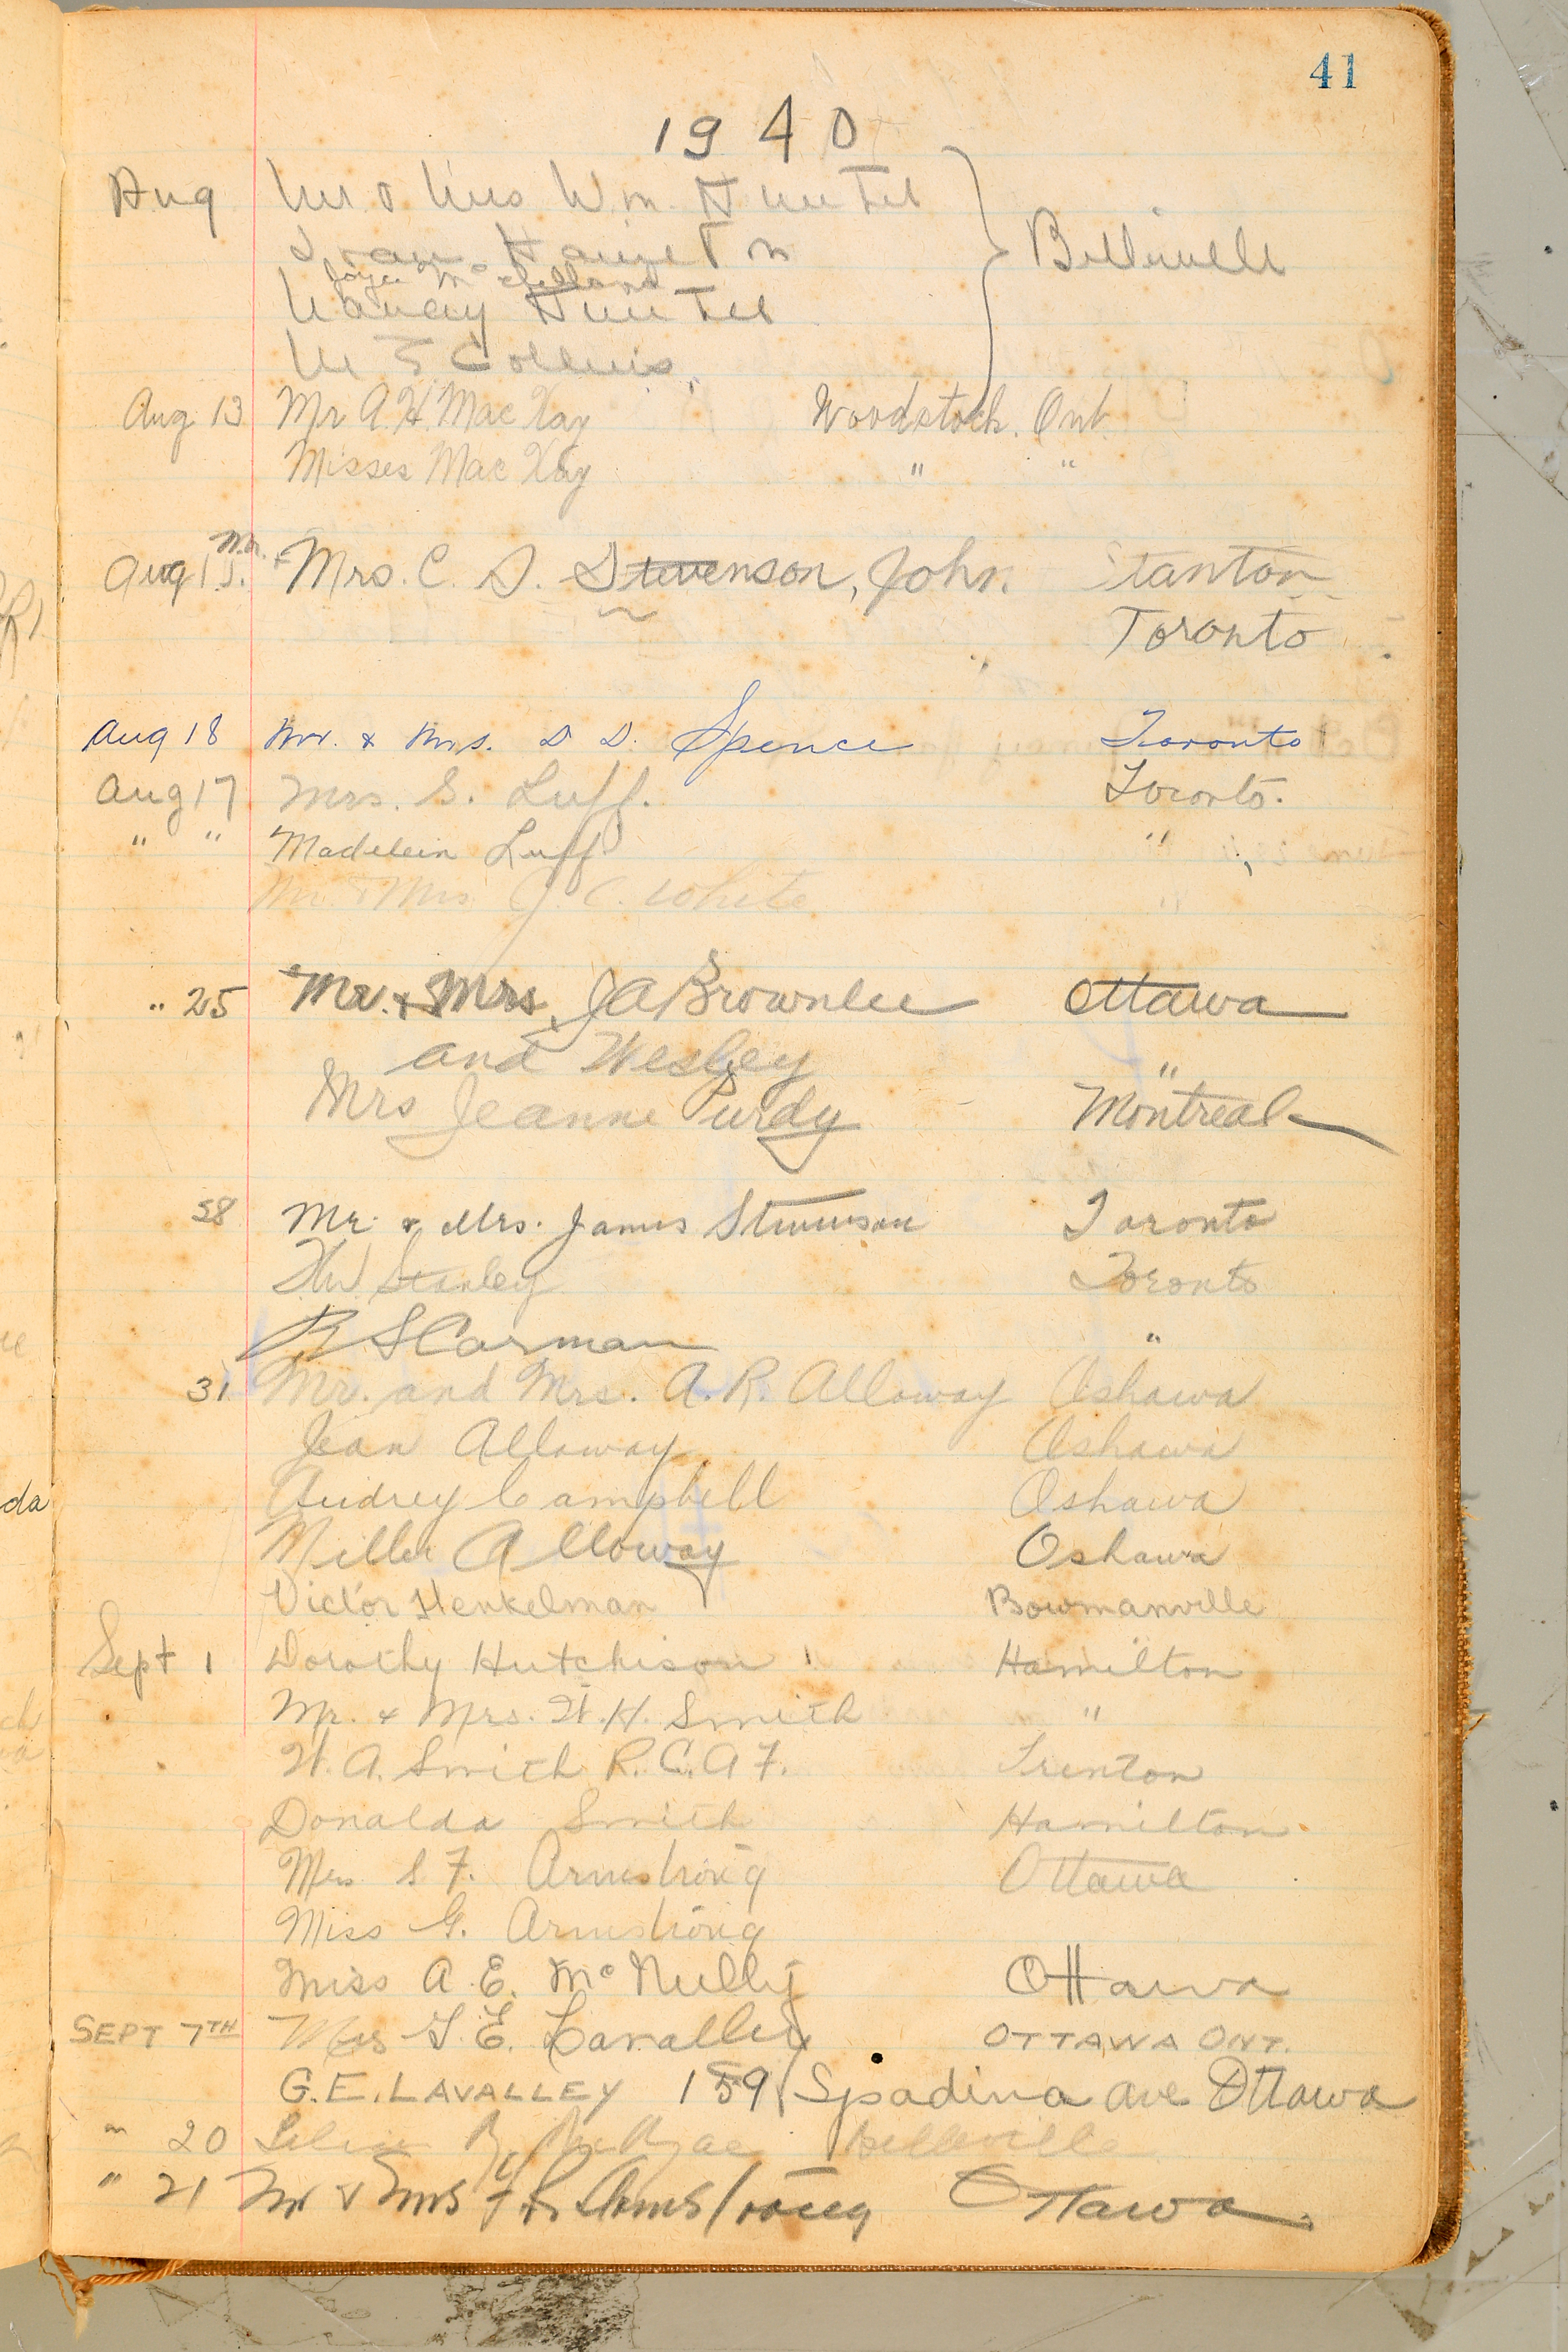 41
1940
Aug Mr & Mrs Wm. Hunter
Belleville
Joyce McClelland
Nancy Hunter
M E Collins
Aug 13 Mr A. H. MacKay Woodstock. Ont.
Misses MacKay " "
Aug 15. Mr. & Mrs. C. D. Stevenson, John. Stanton
Toronto
Aug 18 Mr. & Mrs. D D. Spence Toronto
Aug 17 Mrs. S. Luff. Toronto.
" " Madelein Luff "
Mr. & Mrs J. C. White "
" 25 Mr. & Mrs. J A Brownlee Ottawa
and Wesley "
Mrs Jeanne Purdy Montreal
28 Mr. & Mrs. James Stevenson Toronto
Stanley Toronto
R S Carman "
31 Mr. and Mrs. A. R. Alloway Oshawa
Jean Alloway Oshawa
Audrey Campbell Oshawa
Miller Alloway Oshawa
Victor Henkelman Bowmanville
Sept 1 Dorothy Hutchison Hamilton
Mr. & Mrs. W. H. Smith "
W. A. Smith R.C.A.F. Trenton
Donalda Smith Hamilton
Mrs S F. Armstrong Ottawa
Miss G. Armstrong
Miss A. E. McNulty Ottawa
SEPT 7TH Mrs G. E. Lavalley OTTAWA ONT.
G.E. LAVALLEY 159 Spadina Ave Ottawa
" 20 Belleville
" 21 Mr & Mrs F R Armstrong Ottawa.